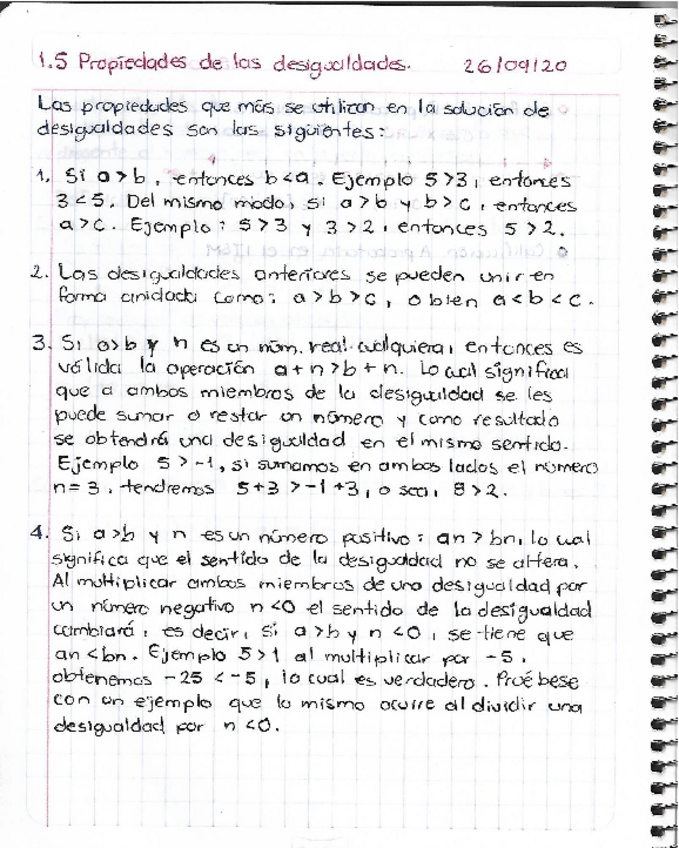 1.5 Propiedades de las desigualdades. 26/09/20
Las propiedades que más se utilizan en la solución de
desigualdades son las siguientes:
1. Si a>b, entonces b<a. Ejemplo 5>3, entonces
3<5. Del mismo modo, si a>b y b>c, entonces
a>c. Ejemplo: 5>3 y 3>2, entonces 5>2.
2. Las desigualdades anteriores se pueden unir en
forma anidada como: a>b>c, o bien a<b<c.
3. Si a>b y n es un núm. real cualquiera, entonces es
válida la operación a+n>b+n. Lo cual significa
que a ambos miembros de la desigualdad se les
puede sumar o restar un número y como resultado
se obtendrá una desigualdad en el mismo sentido.
Ejemplo 5>-1, si sumamos en ambos lados el número
n=3, tendremos 5+3>-1+3, o sea, 8>2.
4. Si a>b y n es un número positivo: an>bn, lo cual
significa que el sentido de la desigualdad no se altera.
Al multiplicar ambos miembros de una desigualdad por
un número negativo n<0 el sentido de la desigualdad
cambiará, es decir, si a>b y n<0, se tiene que
an<bn. Ejemplo 5>1 al multiplicar por -5,
obtenemos -25<-5, lo cual es verdadero. Pruébese
con un ejemplo que lo mismo ocurre al dividir una
desigualdad por n<0.